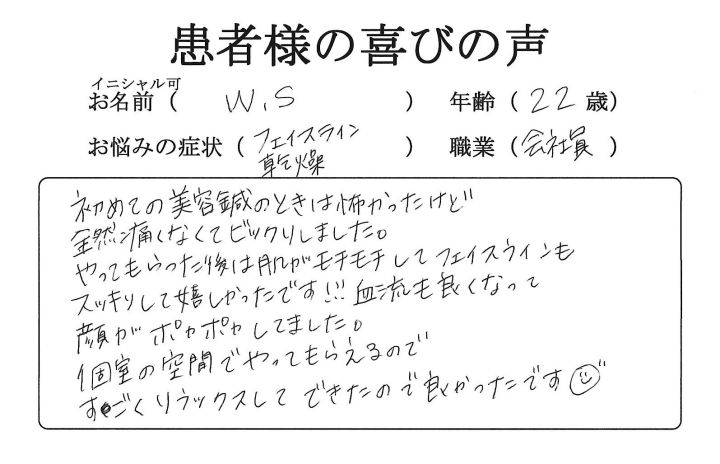 患者様の喜びの声
イニシャル可
お名前（ W.S ） 年齢（ 22 歳）
お悩みの症状（ フェイスライン 乾燥 ） 職業（会社員 ）
初めての美容鍼のときは怖かったけど
全然痛くなくてビックリしました。
やってもらった後は肌がモチモチしてフェイスラインも
スッキリして嬉しかったです!!! 血流も良くなって
顔がポカポカしてました。
個室の空間でやってもらえるので
すごくリラックスしてできたので良かったです